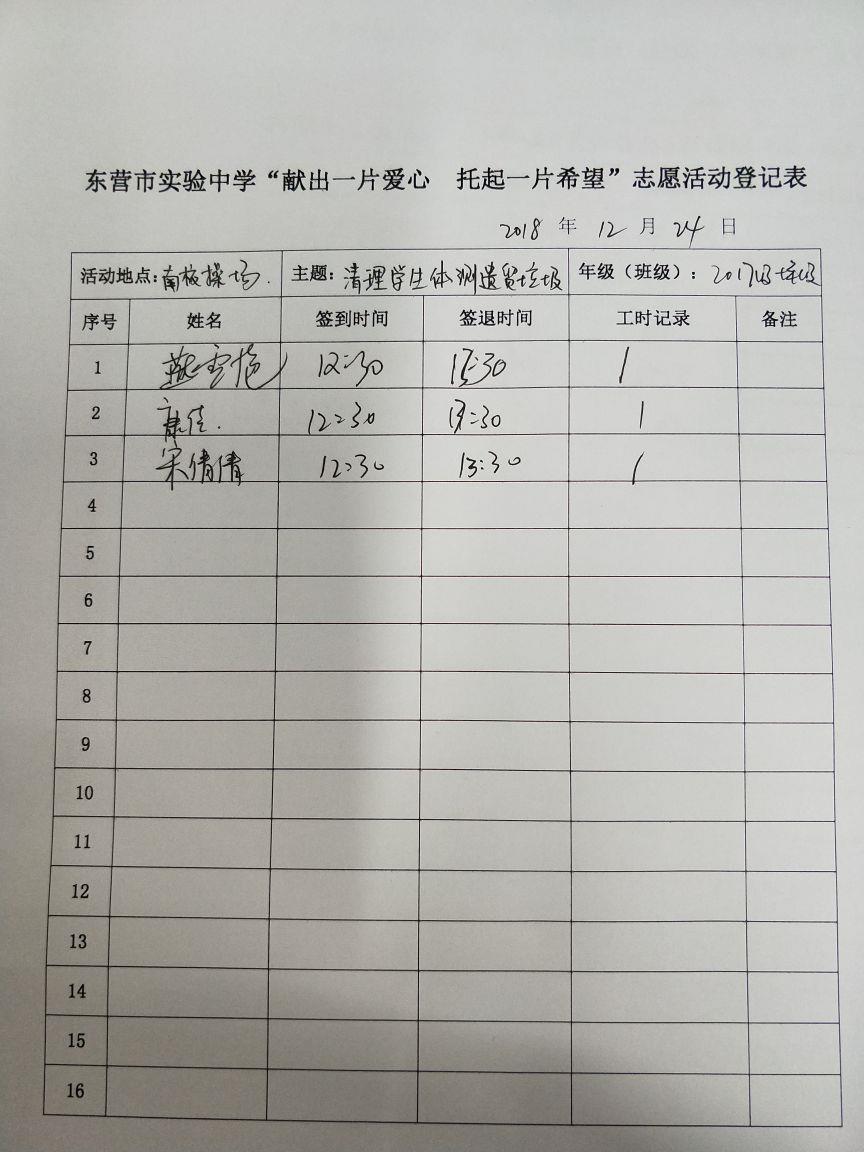 东营市实验中学“献出一片爱心 托起一片希望”志愿活动登记表
2018 年 12 月 24 日
活动地点:南校操场. 主题: 清理学生体测遗留垃圾 年级（班级）: 2017级
序号 姓名 签到时间 签退时间 工时记录 备注
1 12:30 13:30 1
2 康佳. 12:30 13:30 1
3 宋倩倩 12:30 13:30 1
4
5
6
7
8
9
10
11
12
13
14
15
16